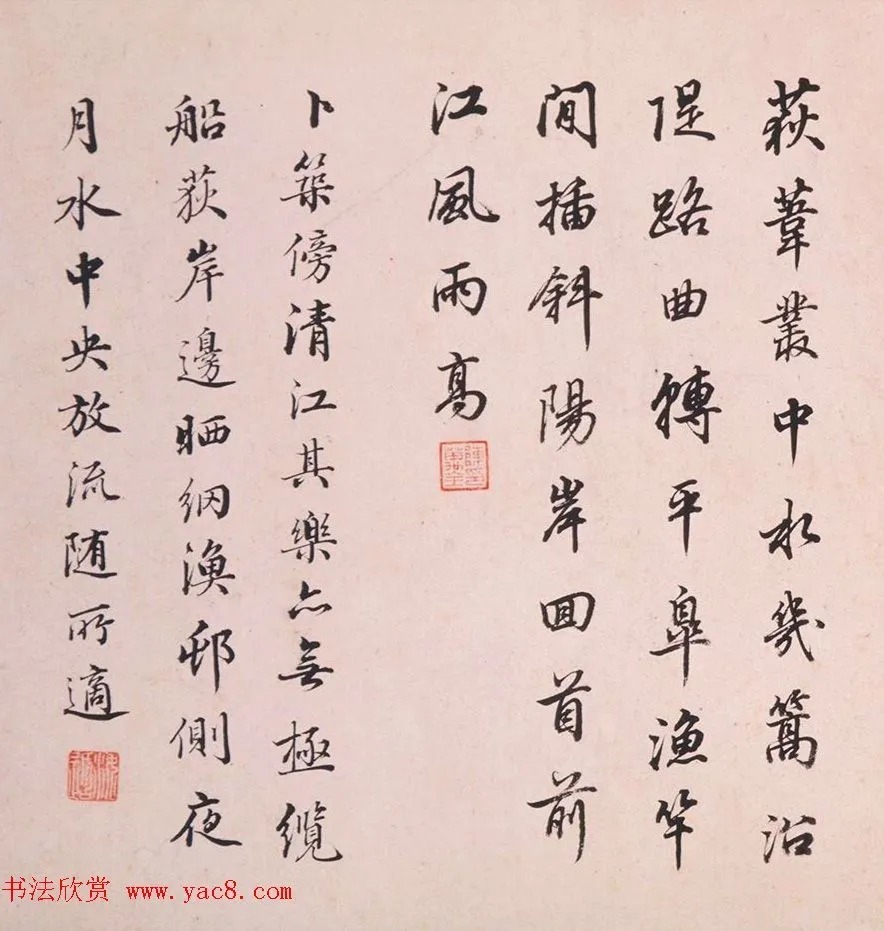 萩葦叢中水幾篙沿
隄路曲轉平皐漁竿
間插斜陽岸回首前
江風雨高
卜築傍清江其樂亦無極纜
船荻岸邊晒網漁邨側夜
月水中央放流随所適
书法欣赏 www.yac8.com